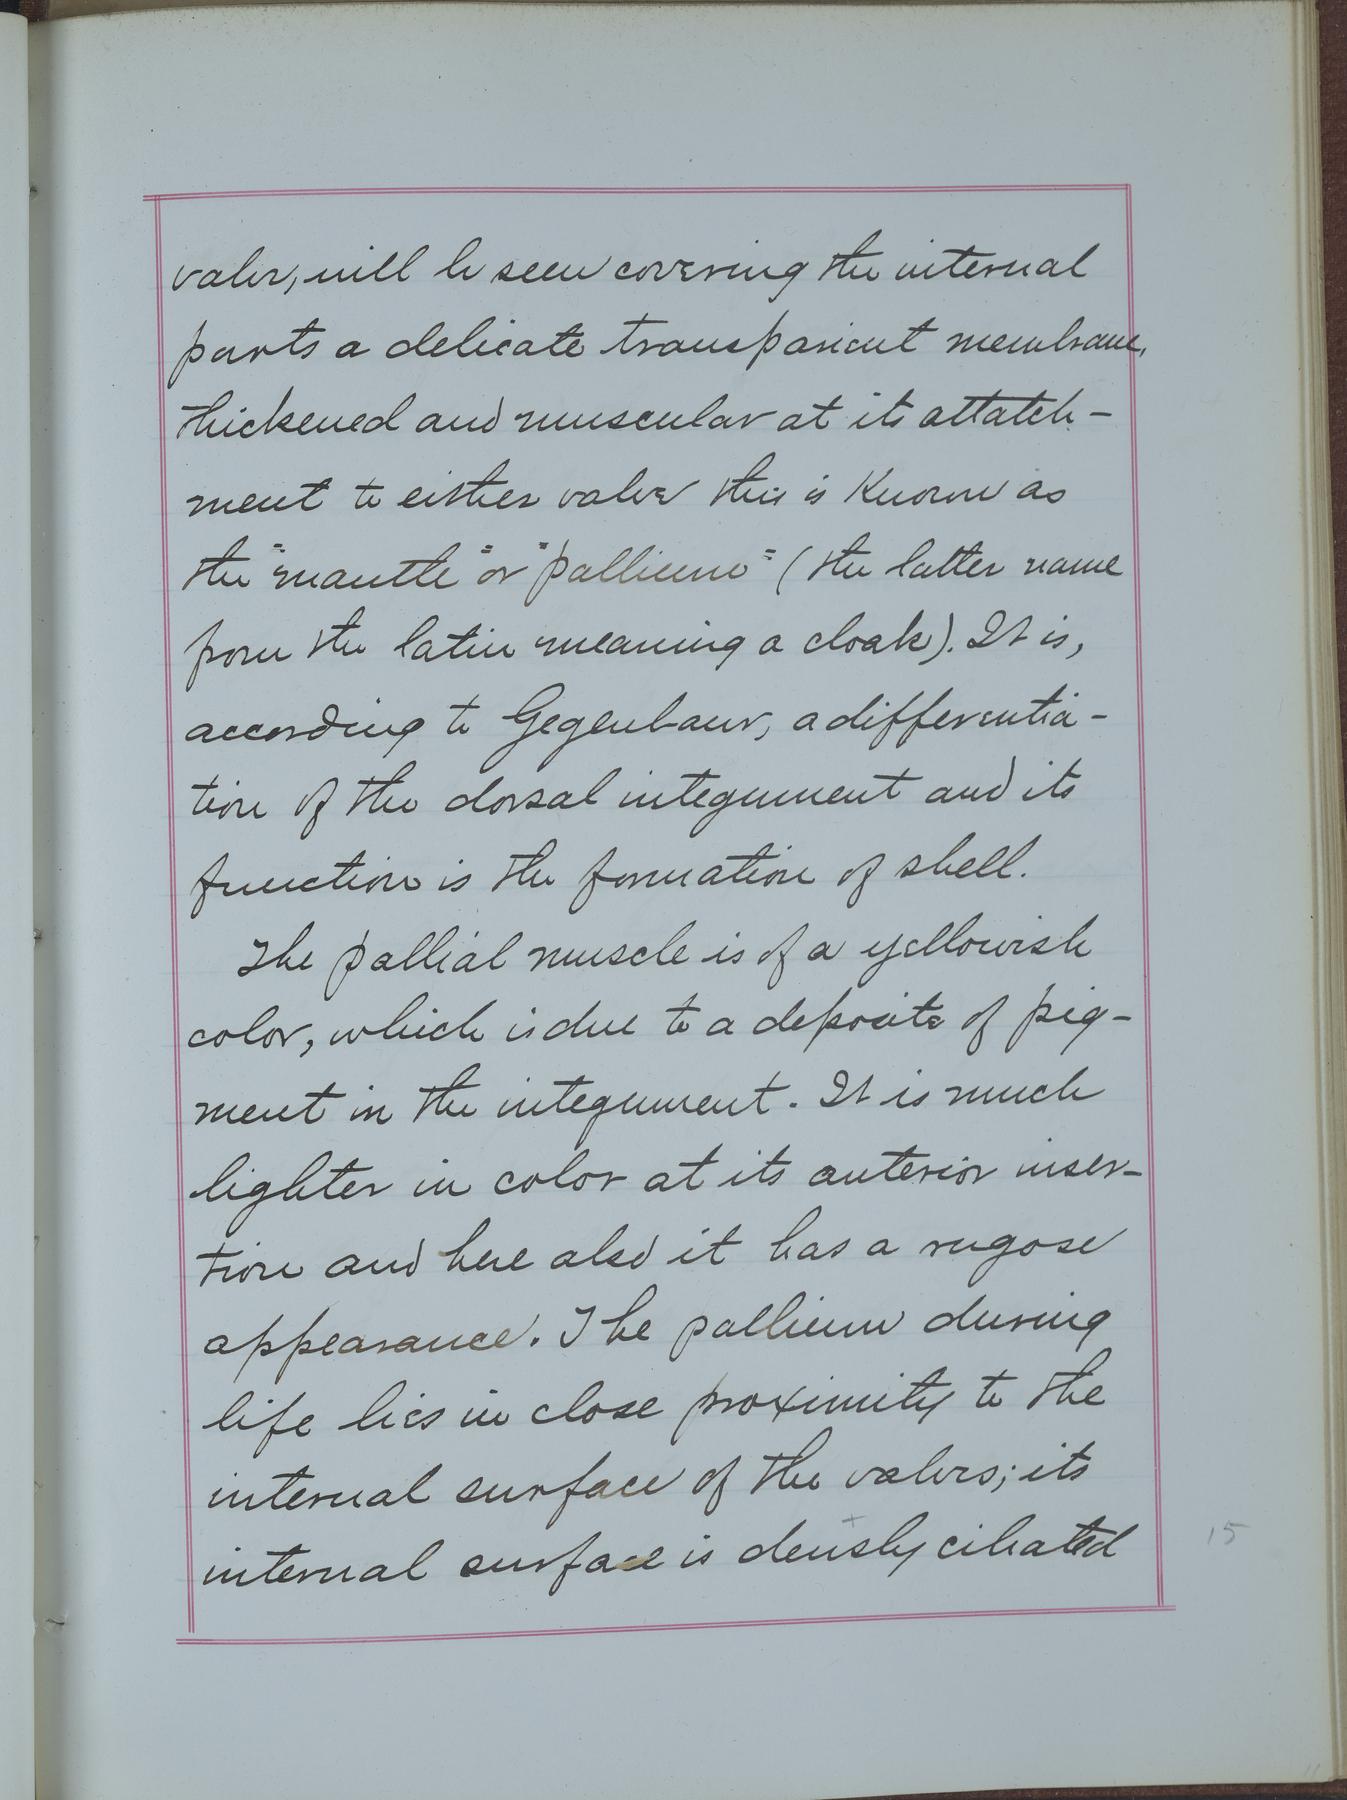 valve, will be seen covering the internal
parts a delicate transparient membrane,
thickened and muscular at its attatch-
ment to either valve this is Known as
the "mantle" or "pallium" (the latter name
from the latin meaning a cloak). It is,
according to Gegenbaur, a differentia-
tion of the dorsal integument and its
function is the formation of shell.
The pallial muscle is of a yellowish
color, which is due to a deposite of pig-
ment in the integument. It is much
lighter in color at its anterior inser-
tion and here also it has a rugose
appearance. The pallium during
life lies in close proximity to the
internal surface of the valves; its
internal surface is densly ciliated
15